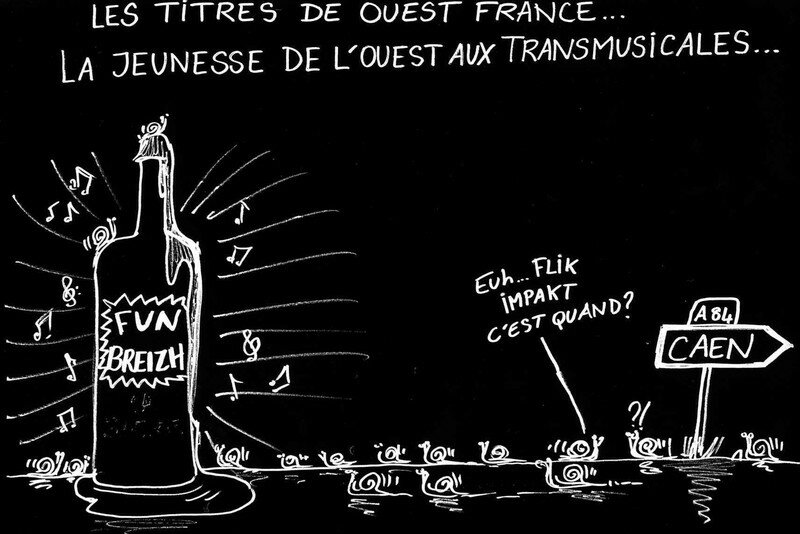 LES TITRES DE OUEST FRANCE...
LA JEUNESSE DE L'OUEST AUX TRANSMUSICALES...
FUN
BREIZH
EUH... FLIK
IMPAKT
C'EST QUAND?
?!
A 84
CAEN